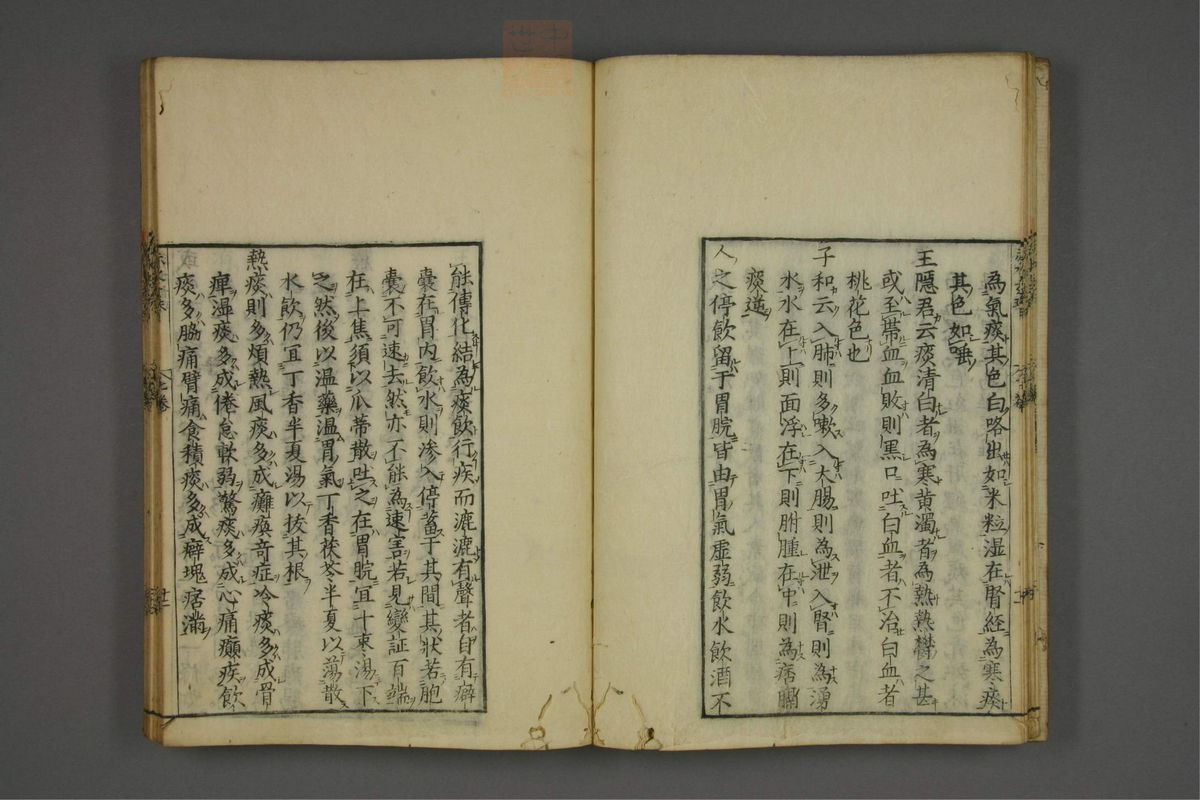 為氣痰其色白咯出如米粒湿在腎経為寒痰
其色如唾
王隱君云痰清白者為寒黄濁者為熱熱欝之甚
或至帯血血敗則黒只吐白血者不治白血者
桃花色也
子和云入肺則多嗽入大腸則為泄入腎則為湧
水水在上則面浮在下則胕腫在中則為痞隔
痰逆
人之停飲留于胃脘皆由胃氣虚弱飲水飲酒不
能傳化結為痰飲行疾而漉漉有聲者自有癖
囊在胃内飲水則滲入停蓄于其間其状若胞
囊不可速去然亦不能為速害若見變証百端
在上焦須以瓜蒂散吐之在胃脘冝十棗湯下
之然後以温藥温胃氣丁香茯苓半夏以蕩散
水飲仍冝丁香半夏湯以抜其根
熱痰則多煩熱風痰多成癱瘓奇症冷痰多成骨
痺湿痰多成倦怠軟弱驚痰多成心痛癲疾飲
痰多脇痛臂痛食積痰多成癖塊痞満